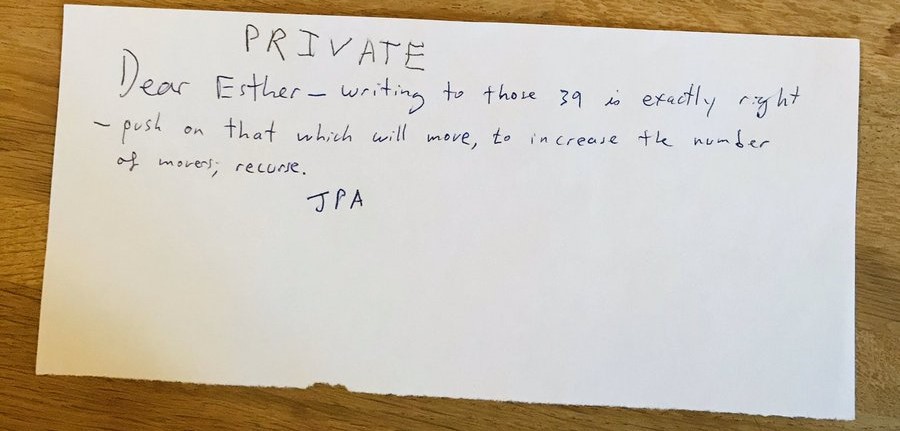 PRIVATE
Dear Esther – writing to those 39 is exactly right
– push on that which will move, to increase the number
of movers; recurse.
JPA